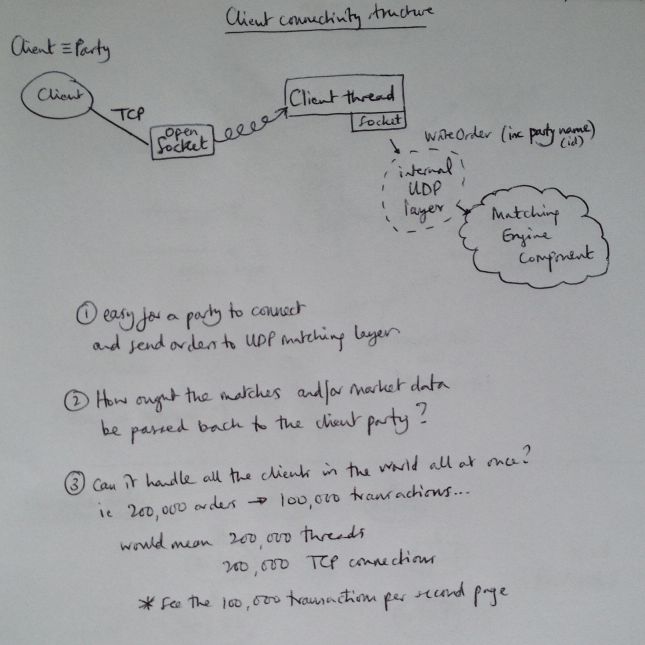 Client connectivity structure
Client ≡ Party
Client
TCP
open
Socket
Client thread
Socket
WriteOrder (inc party name)
(id)
internal
UDP
layer
Matching
Engine
Component
① easy for a party to connect
and send orders to UDP matching layer
② How ought the matches and/or market data
be passed back to the client party?
③ Can it handle all the clients in the world all at once?
ie 200,000 orders → 100,000 transactions...
would mean 200,000 threads
200,000 TCP connections
* see the 100,000 transactions per second page